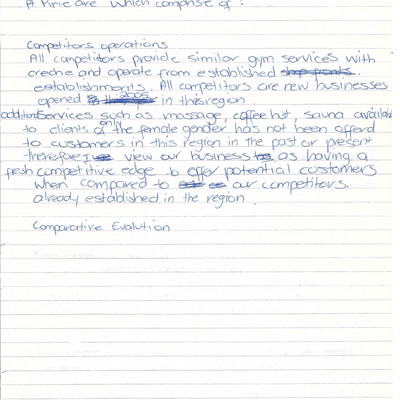 Pt Pirie are which comprise of :
Competitors operations
All competitors provide similar gym services with
creche and operate from established shop fronts.
establishments. All competitors are new businesses
opened in this region.
additional Services such as massage, coffee hut, sauna available
to clients of only the female gender has not been offerd
to customers in this region in the past or present
therefore I view our business as having a
fresh competitive edge to offer potential customers
when compared to our competitors.
already established in the region.
Comparative Evalution